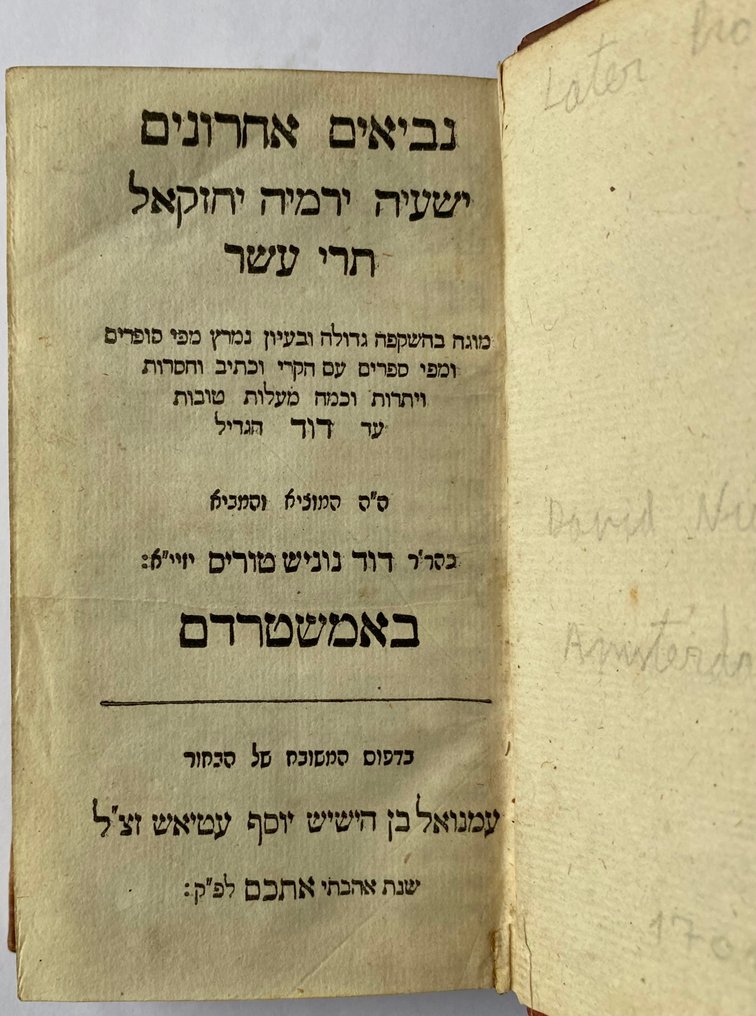 נביאים אחרונים
ישעיה ירמיה יחזקאל
תרי עשר
מוגה בהשקפה גדולה ובעיון נמרץ מפי סופרים
ומפי ספרים עם הקרי וכתיב וחסרות
ויתרות וכמה מעלות טובות
עד דוד הגדיל
ה"ה המוציא והמביא
כהר"ר דוד נוניש טורים יזיי"א:
באמשטרדם
בדפוס המשובח של הבחור
עמנואל בן הישיש יוסף עטיאש זצ"ל
שנת אהבתי אתכם לפ"ק:
Later
David